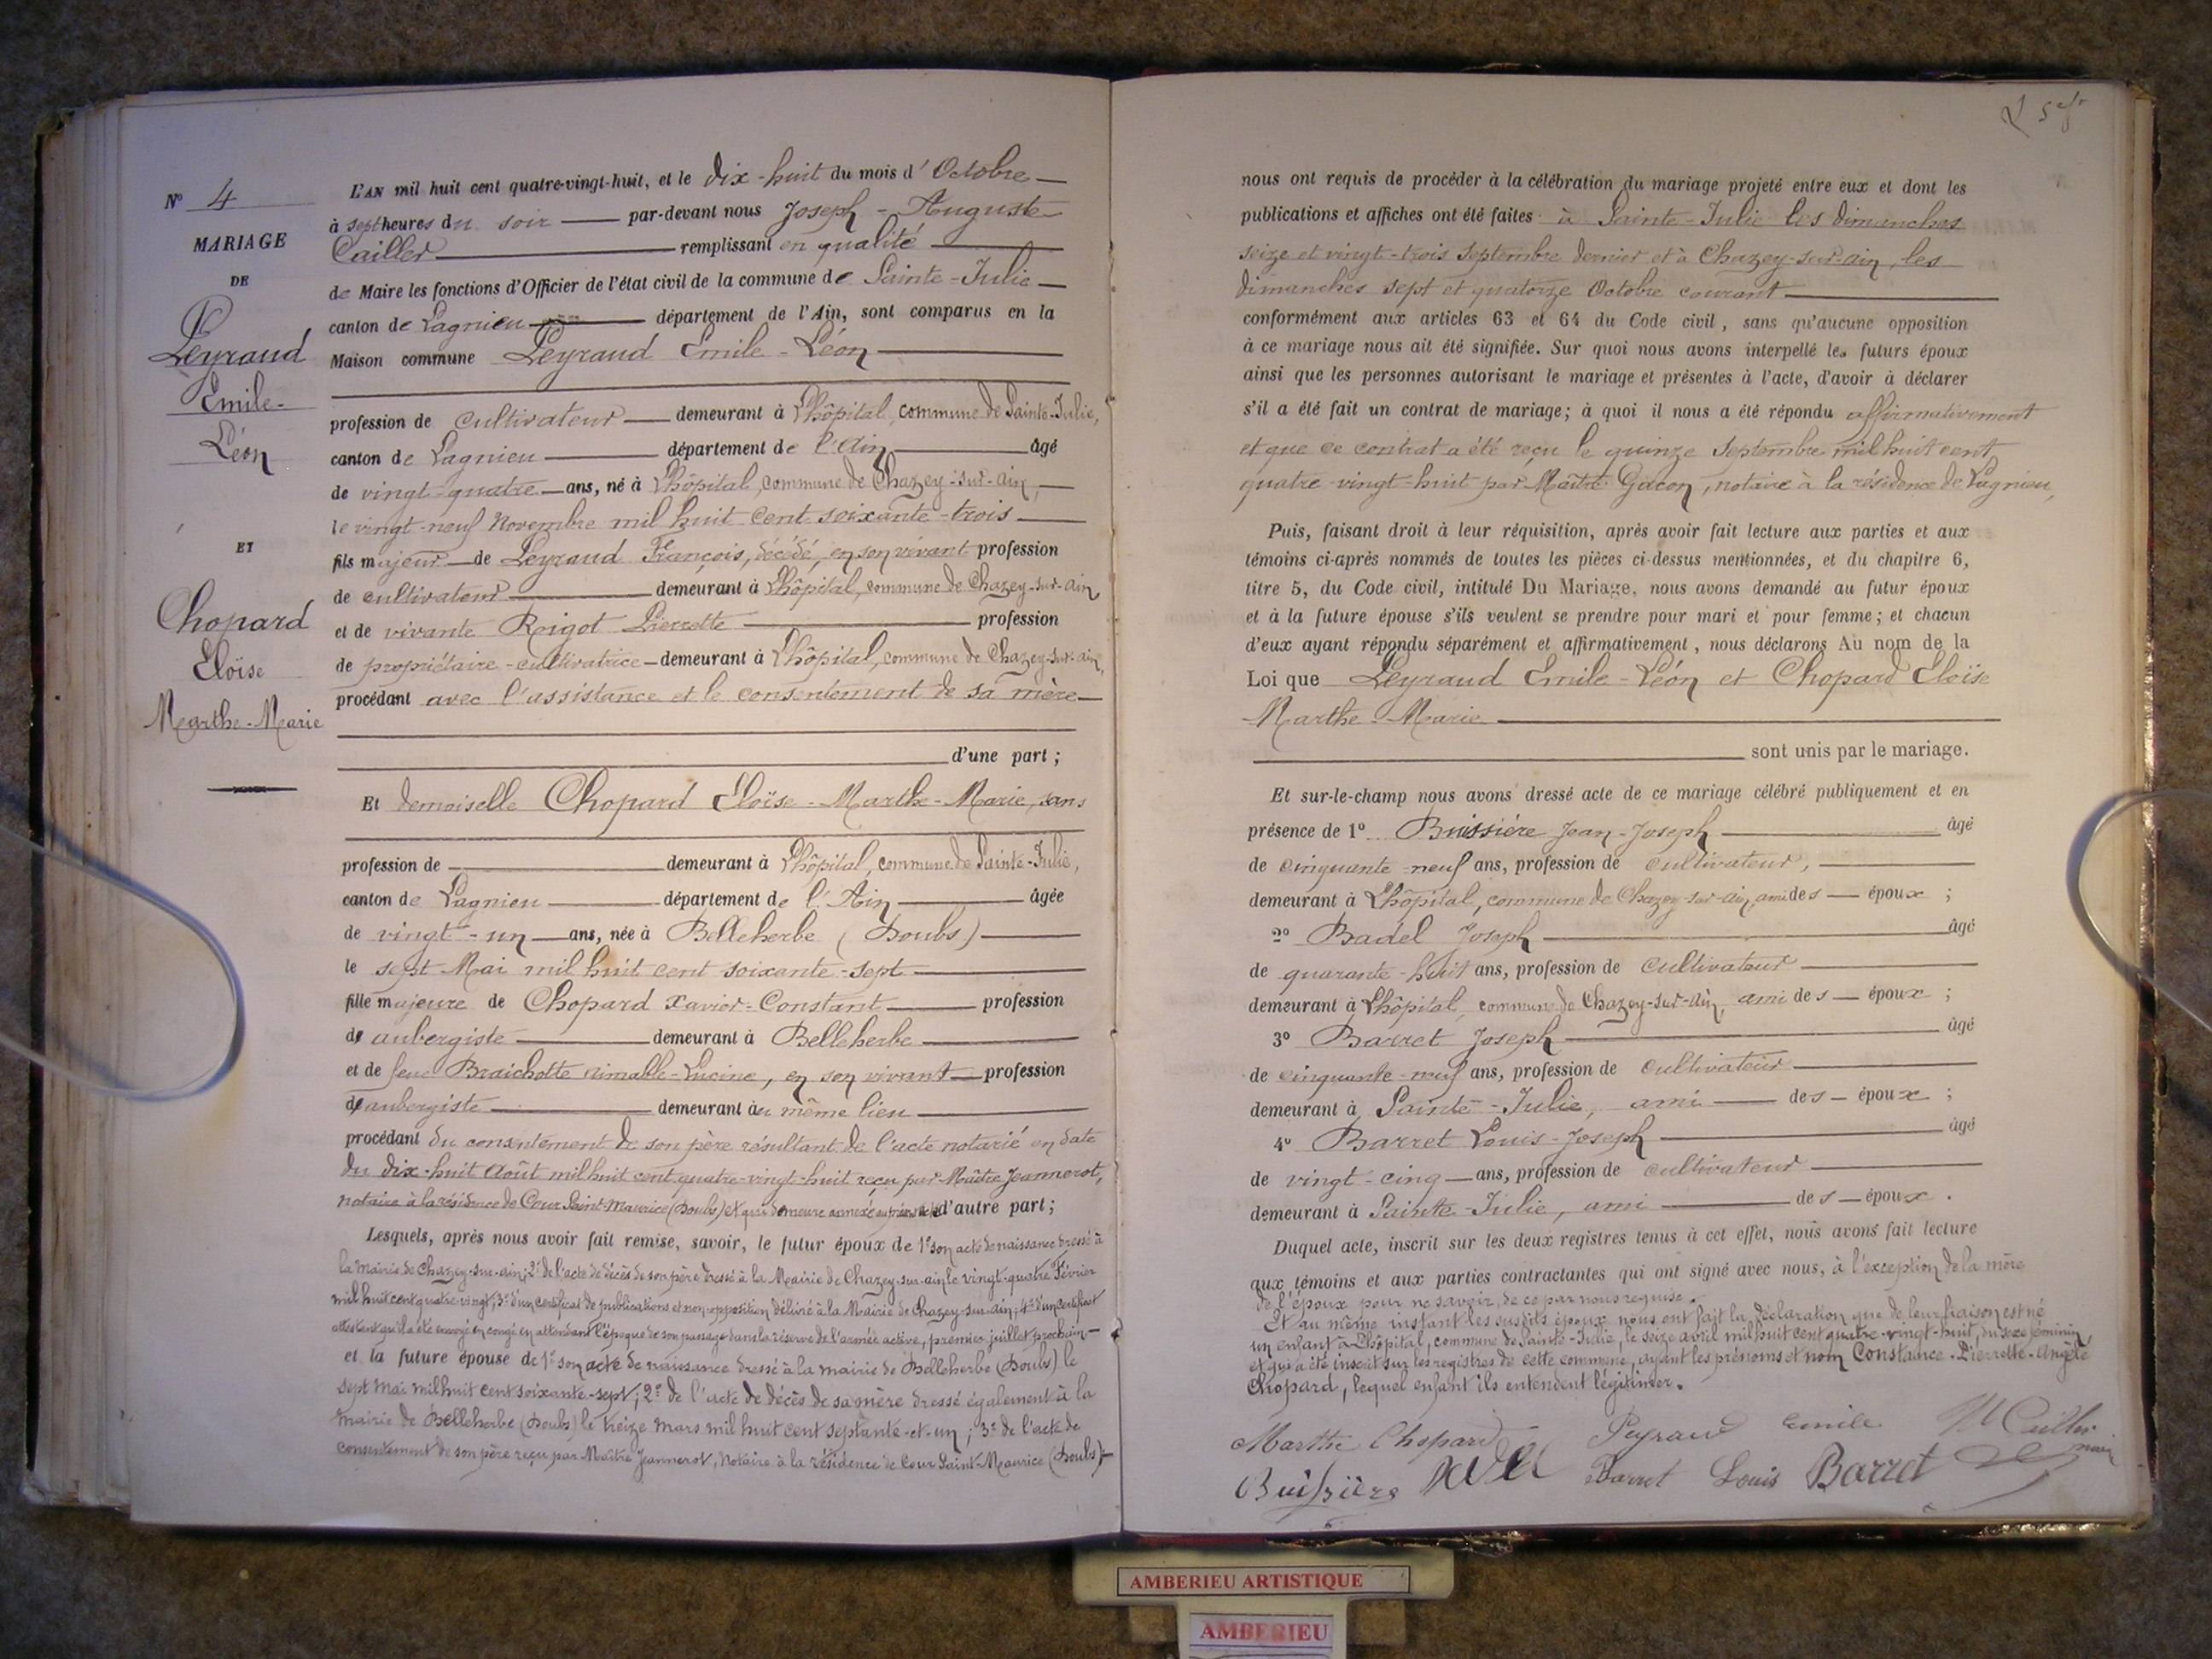 N° 4
MARIAGE
DE
Peyraud
Emile-
Léon
ET
Chopard
Eloïse
Marthe-Marie
L'AN mil huit cent quatre-vingt-huit, et le dix-huit du mois d'Octobre
à sept heures du soir par-devant nous Joseph-Auguste
Cailler remplissant en qualité
de Maire les fonctions d'Officier de l'état civil de la commune de Sainte-Julie
canton de Lagnieu département de l'Ain, sont comparus en la
Maison commune Peyraud Emile-Léon
profession de cultivateur demeurant à Lhôpital, commune de Sainte-Julie,
canton de Lagnieu département de l'Ain âgé
de vingt-quatre ans, né à Lhôpital, commune de Chazey-sur-Ain,
le vingt-neuf Novembre mil huit cent soixante-trois
fils majeur de Peyraud François, décédé, en son vivant profession
de cultivateur demeurant à Lhôpital, commune de Chazey-sur-Ain
et de vivante Roigot Pierrette profession
de propriétaire-cultivatrice demeurant à Lhôpital, commune de Chazey-sur-Ain,
procédant avec l'assistance et le consentement de sa mère
d'une part ;
Et demoiselle Chopard Eloïse-Marthe-Marie, sans
profession de demeurant à Lhôpital, commune de Sainte-Julie,
canton de Lagnieu département de l'Ain âgée
de vingt-un ans, née à Belleherbe (Doubs)
le sept Mai mil huit cent soixante-sept
fille majeure de Chopard Xavier-Constant profession
d'aubergiste demeurant à Belleherbe
et de feue Braichotte Aimable-Lucine, en son vivant profession
d'aubergiste demeurant au même lieu
procédant du consentement de son père résultant de l'acte notarié en date
du dix-huit Août mil huit cent quatre-vingt-huit reçu par Maître Jeannerot,
notaire à la résidence de Cour Saint-Maurice (Doubs) et qui demeure annexé au présent acte d'autre part ;
Lesquels, après nous avoir fait remise, savoir, le futur époux de 1° son acte de naissance dressé à
la Mairie de Chazey-sur-Ain ; 2° de l'acte de décès de son père dressé à la Mairie de Chazey-sur-Ain le vingt-quatre Février
mil huit cent quatre-vingt ; 3° d'un certificat de publications et non opposition délivré à la Mairie de Chazey-sur-Ain ; 4° d'un certificat
attestant qu'il a été envoyé en congé en attendant l'époque de son passage dans la réserve de l'armée active, premier juillet prochain
et la future épouse de 1° son acte de naissance dressé à la mairie de Belleherbe (Doubs) le
sept Mai mil huit cent soixante-sept ; 2° de l'acte de décès de sa mère dressé également à la
mairie de Belleherbe (Doubs) le treize Mars mil huit cent septante-et-un ; 3° de l'acte de
consentement de son père reçu par Maître Jeannerot, Notaire à la résidence de Cour Saint-Maurice (Doubs)
nous ont requis de procéder à la célébration du mariage projeté entre eux et dont les
publications et affiches ont été faites à Sainte-Julie les dimanches
seize et vingt-trois Septembre dernier et à Chazey-sur-Ain, les
dimanches sept et quatorze Octobre courant
conformément aux articles 63 et 64 du Code civil, sans qu'aucune opposition
à ce mariage nous ait été signifiée. Sur quoi nous avons interpellé les futurs époux
ainsi que les personnes autorisant le mariage et présentes à l'acte, d'avoir à déclarer
s'il a été fait un contrat de mariage ; à quoi il nous a été répondu affirmativement
et que ce contrat a été reçu le quinze Septembre mil huit cent
quatre-vingt-huit par Maître Gacon, notaire à la résidence de Lagnieu,
Puis, faisant droit à leur réquisition, après avoir fait lecture aux parties et aux
témoins ci-après nommés de toutes les pièces ci-dessus mentionnées, et du chapitre 6,
titre 5, du Code civil, intitulé Du Mariage, nous avons demandé au futur époux
et à la future épouse s'ils veulent se prendre pour mari et pour femme ; et chacun
d'eux ayant répondu séparément et affirmativement, nous déclarons Au nom de la
Loi que Peyraud Emile-Léon et Chopard Eloïse
Marthe-Marie
sont unis par le mariage.
Et sur-le-champ nous avons dressé acte de ce mariage célébré publiquement et en
présence de 1° Buissière Jean-Joseph âgé
de cinquante-neuf ans, profession de cultivateur,
demeurant à Lhôpital, commune de Chazey-sur-Ain, ami des époux ;
2° Badel Joseph âgé
de quarante-huit ans, profession de cultivateur
demeurant à Lhôpital, commune de Chazey-sur-Ain, ami des époux ;
3° Barret Joseph âgé
de cinquante-neuf ans, profession de cultivateur
demeurant à Sainte-Julie, ami des époux ;
4° Barret Louis-Joseph âgé
de vingt-cinq ans, profession de cultivateur
demeurant à Sainte-Julie, ami des époux.
Duquel acte, inscrit sur les deux registres tenus à cet effet, nous avons fait lecture
aux témoins et aux parties contractantes qui ont signé avec nous, à l'exception de la mère
de l'époux pour ne savoir, de ce par nous requise.
Et au même instant les susdits époux nous ont fait la déclaration que de leur liaison est né
un enfant à Lhôpital, commune de Sainte-Julie, le seize avril mil huit cent quatre-vingt-huit, du sexe féminin,
et qui a été inscrit sur les registres de cette commune, ayant les prénoms et nom Constance-Pierrette-Angèle
Chopard, lequel enfant ils entendent légitimer.
Marthe Chopard Peyraud Emile Cailler
maire
Buissière Barret Louis Barret
AMBERIEU ARTISTIQUE
AMBERIEU